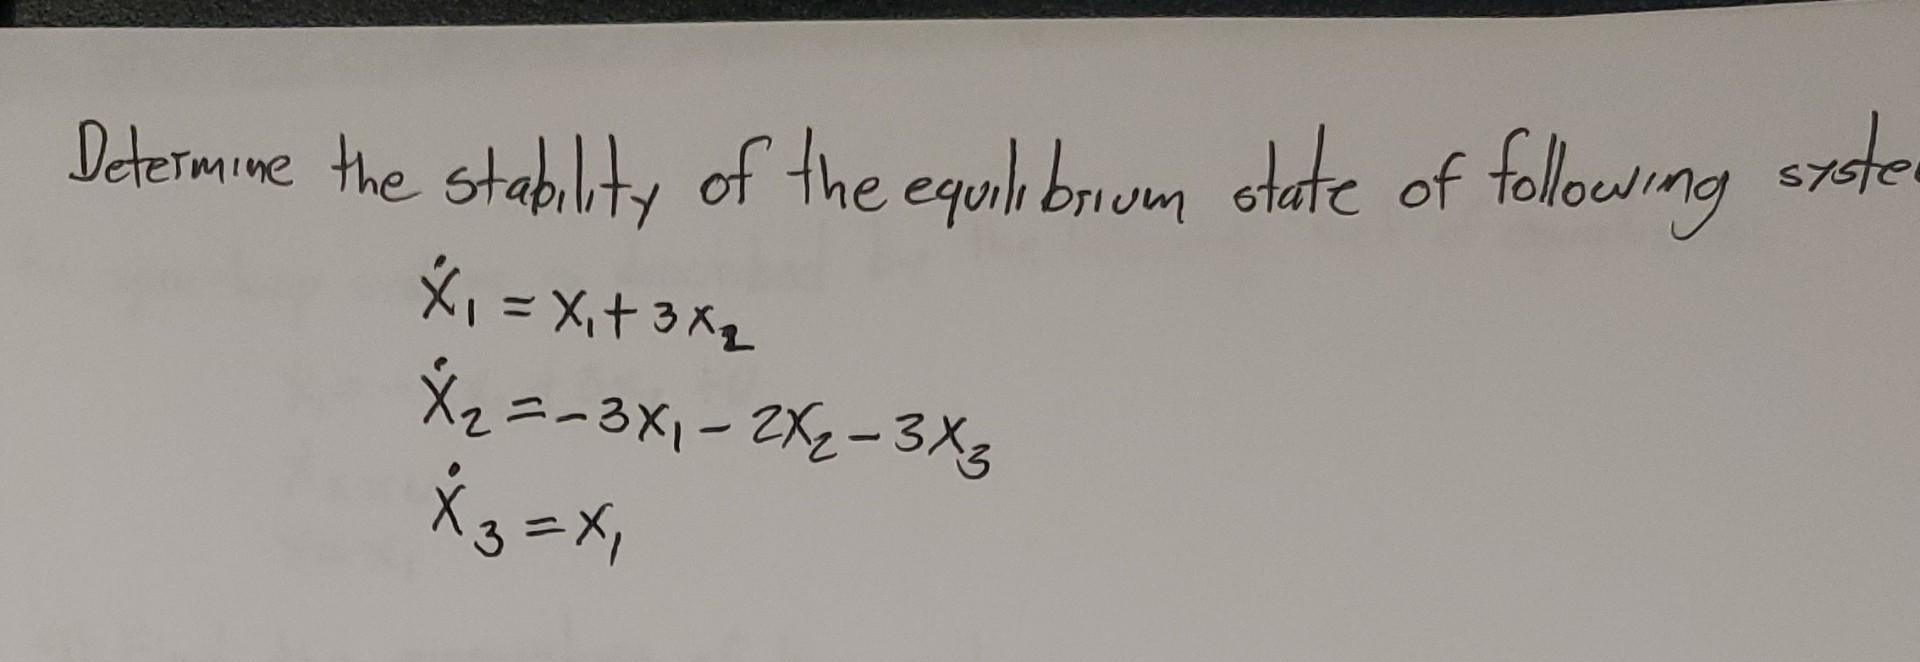 Determine the stability of the equilibrium state of following syste
ẋ₁ = x₁ + 3x₂
ẋ₂ = -3x₁ - 2x₂ - 3x₃
ẋ₃ = x₁